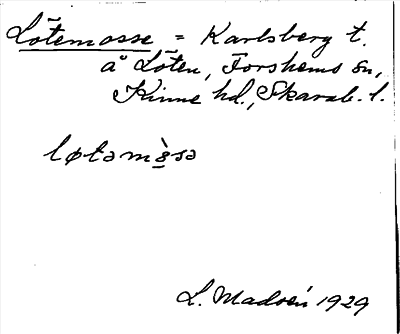 Lötemosse = Karlsberg t.
å Löten, Forshems sn,
Kinne hd., Skarab. l.
løtəmòsə
L. Madsén 1929